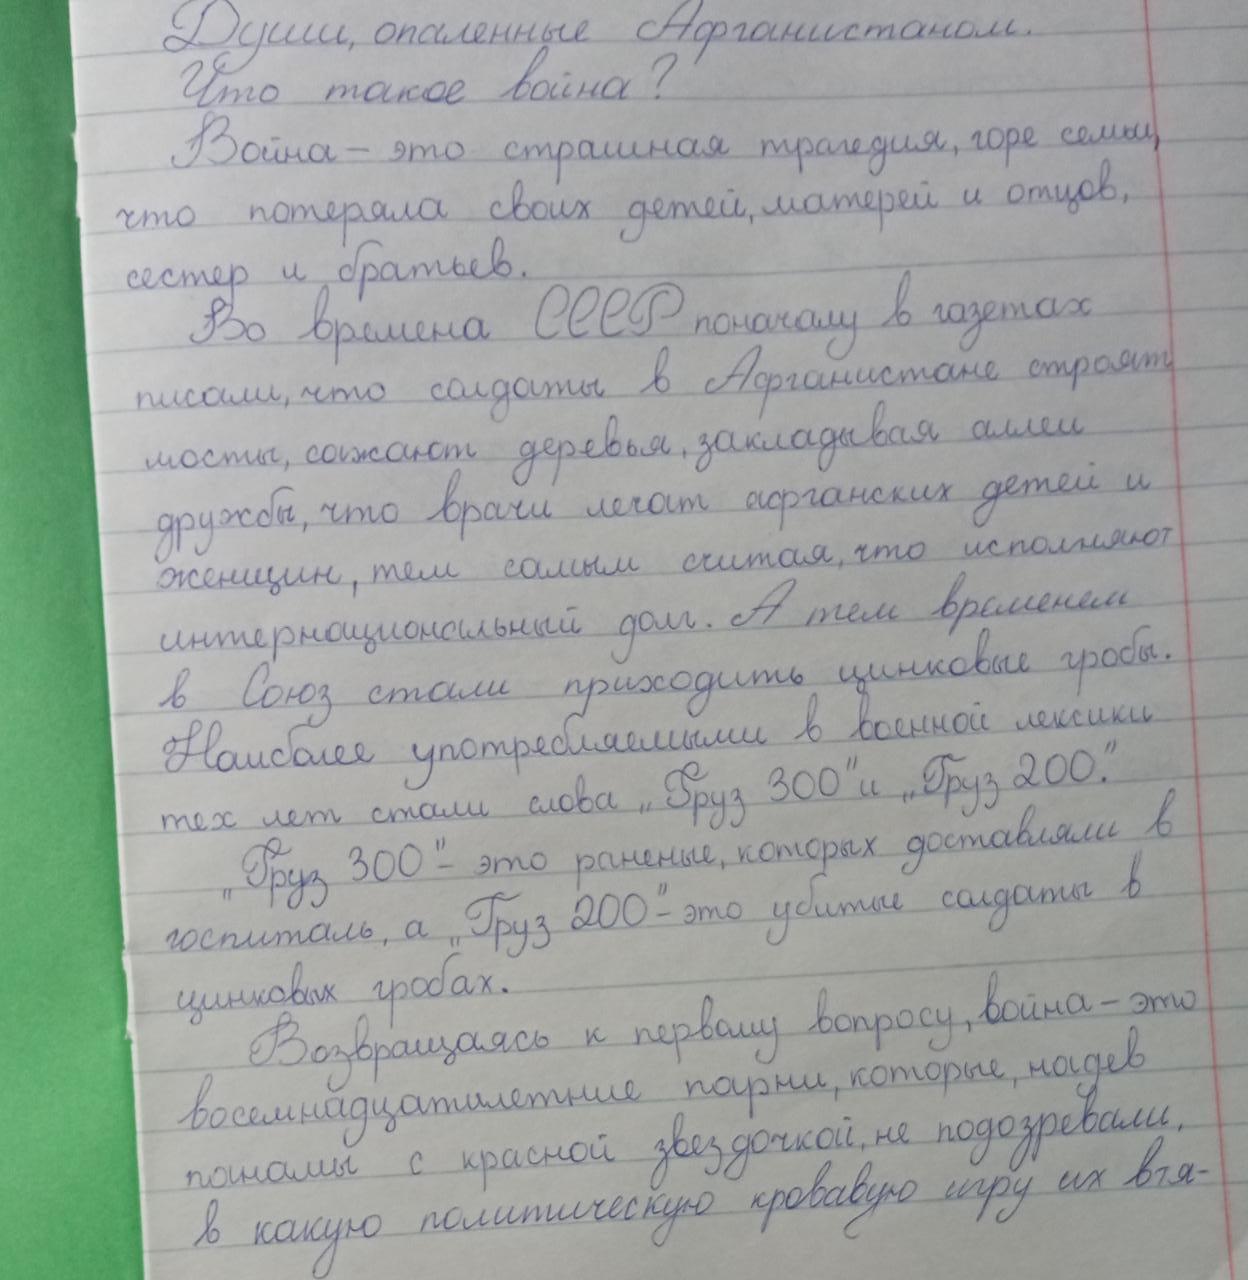 Души, опаленные Афганистаном.
Что такое война?
Война - это страшная трагедия, горе семьи,
что потеряла своих детей, матерей и отцов,
сестер и братьев.
Во времена СССР поначалу в газетах
писали, что солдаты в Афганистане строят
мосты, сажают деревья, закладывая аллеи
дружбы, что врачи лечат афганских детей и
женщин, тем самым считая, что исполняют
интернациональный долг. А тем временем
в Союз стали приходить цинковые гробы.
Наиболее употребляемыми в военной лексики
тех лет стали слова „Груз 300" и „Груз 200."
„Груз 300" - это раненые, которых доставляли в
госпиталь, а „Груз 200" - это убитые солдаты в
цинковых гробах.
Возвращаясь к первому вопросу, война - это
восемнадцатилетние парни, которые, надев
панамы с красной звездочкой, не подозревали,
в какую политическую кровавую игру их втя-